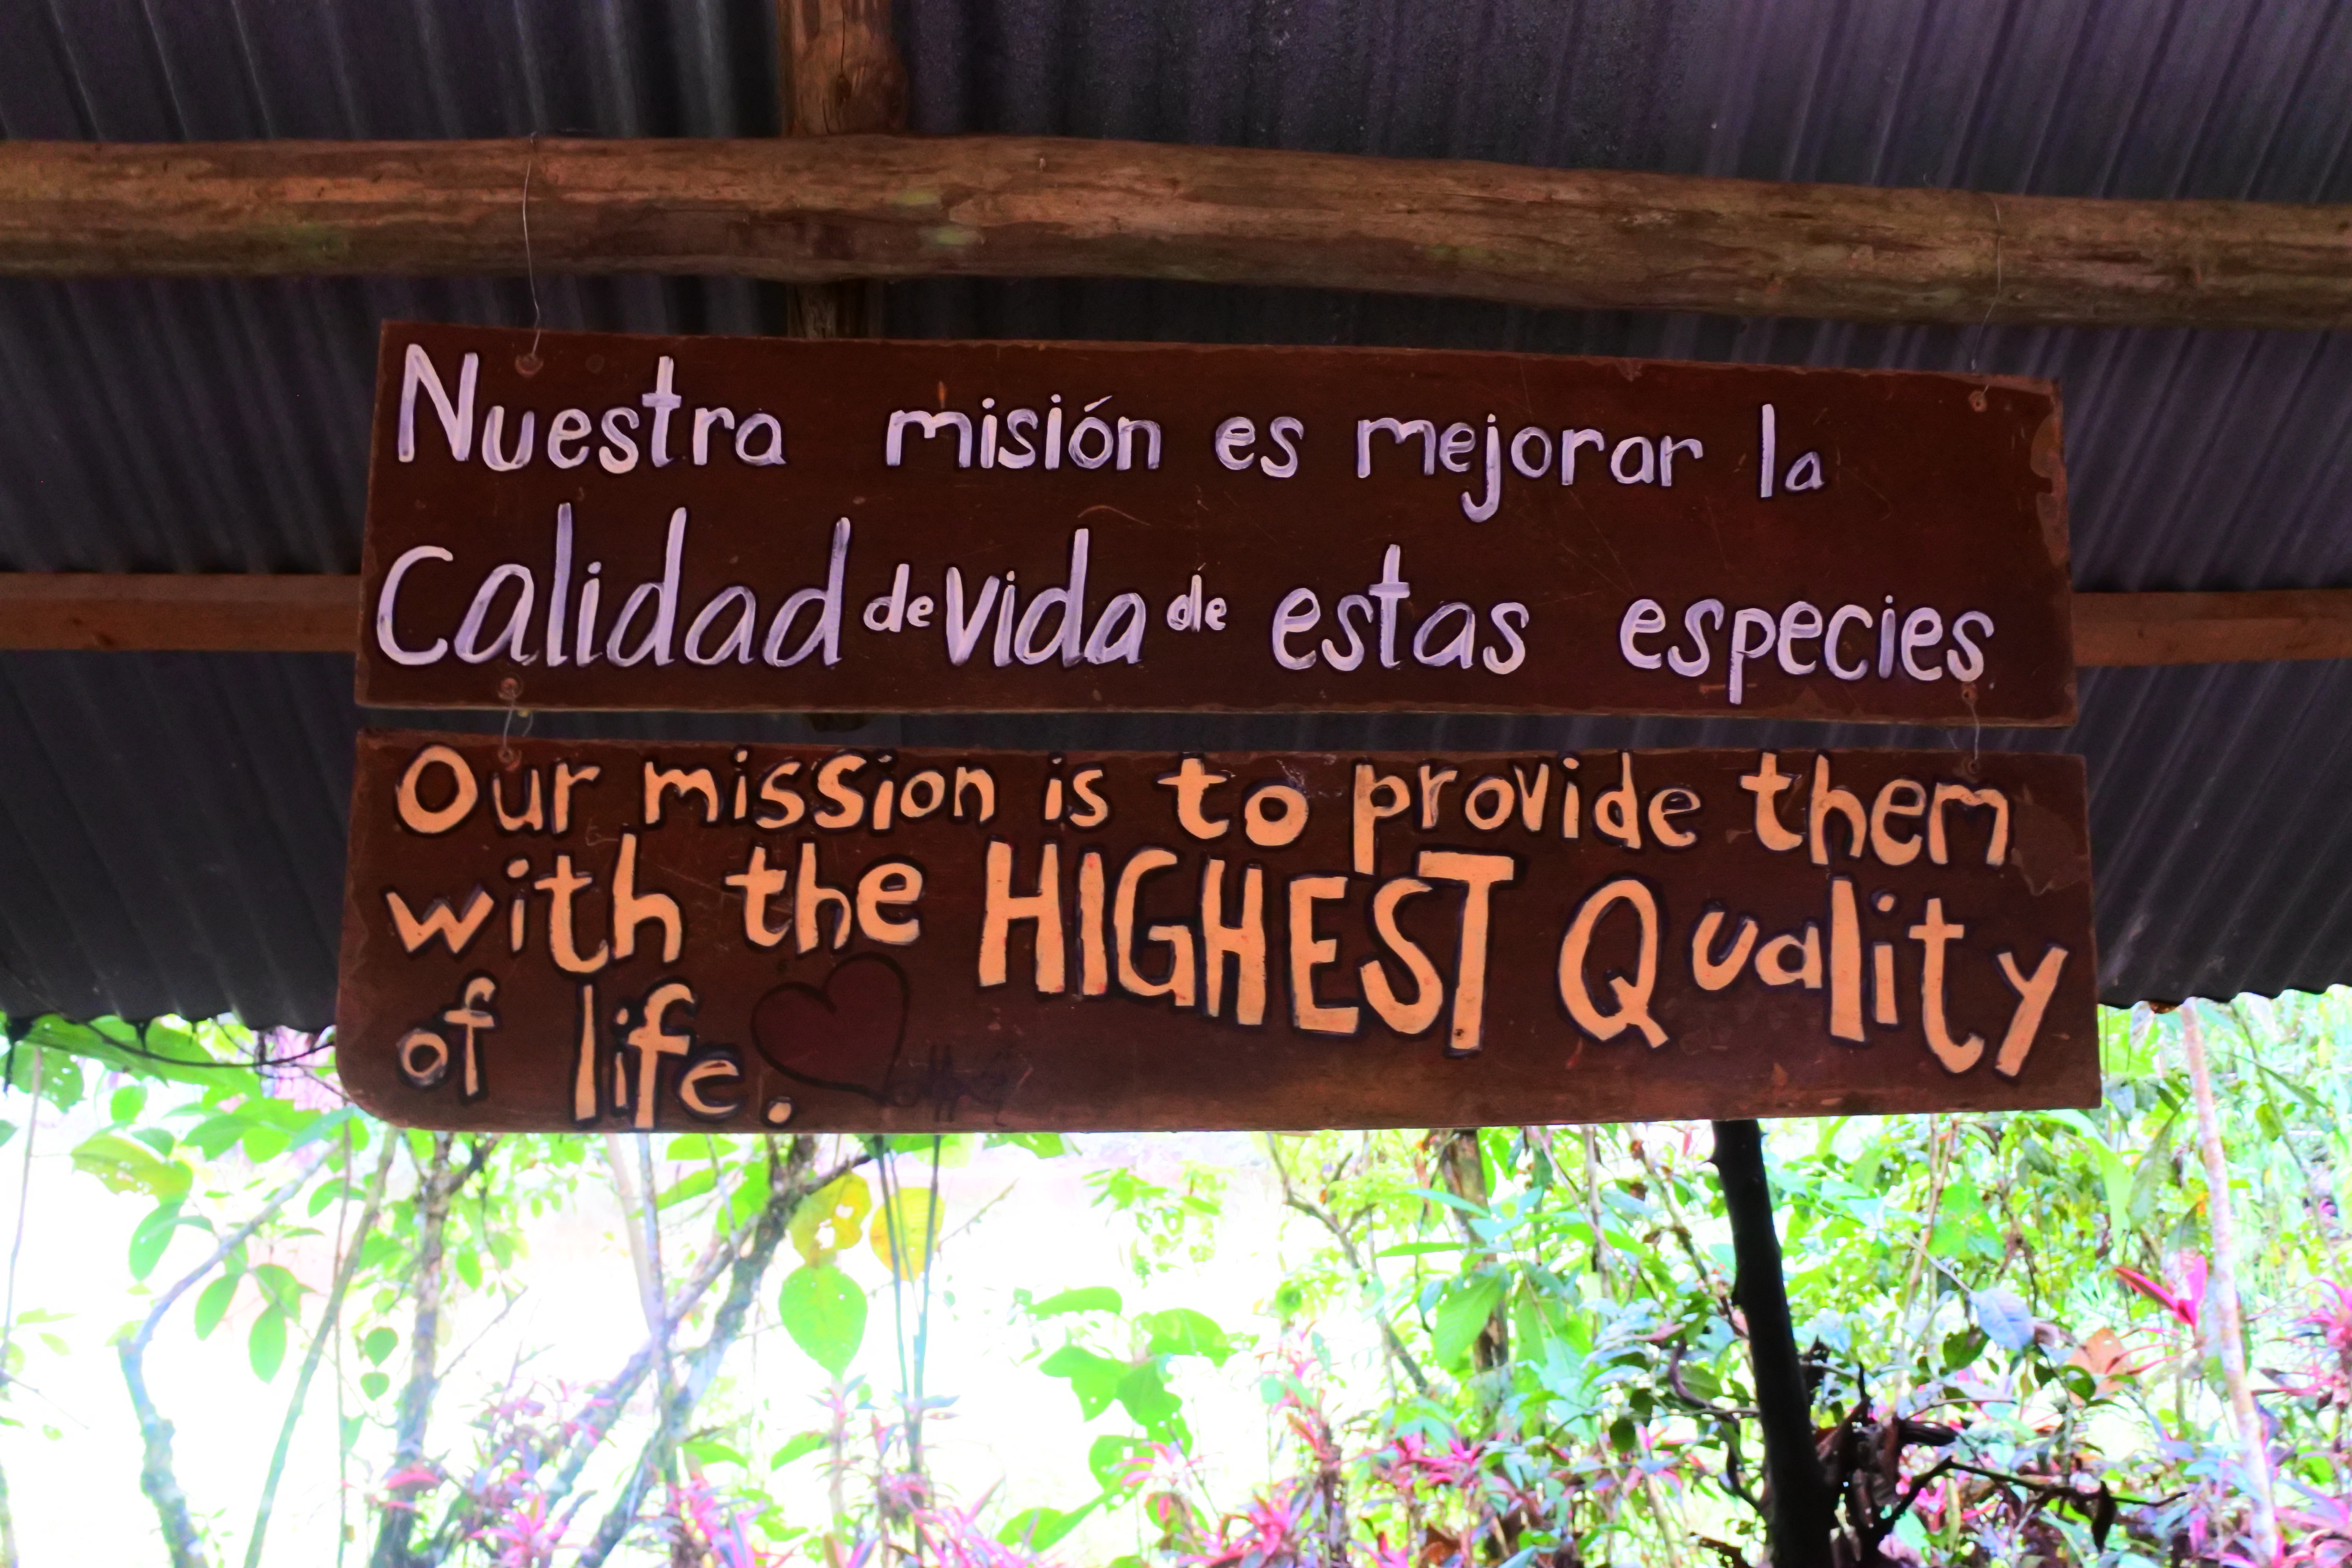 Nuestra misión es mejorar la
Calidad de Vida de estas especies
Our mission is to provide them
with the HIGHEST Quality
of life.